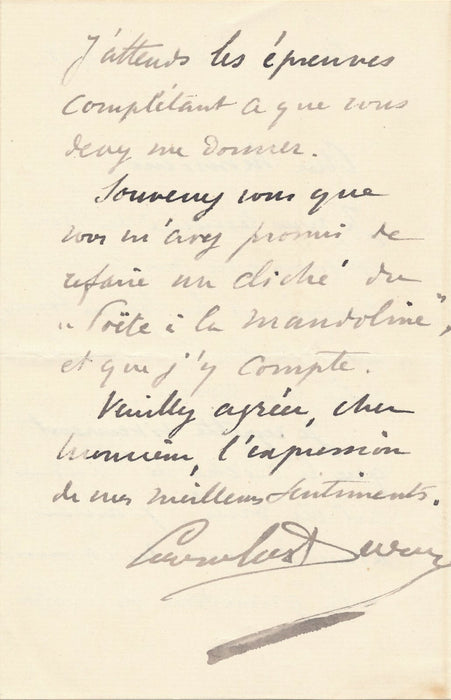 J'attends les épreuves
complétant ce que vous
devez me donner.
Souvenez vous que
vous m'avez promis de
refaire un cliché du
"Poëte à la mandoline",
et que j'y compte.
Veuillez agréer, cher
monsieur, l'expression
de mes meilleurs sentiments.
Carolus Duran